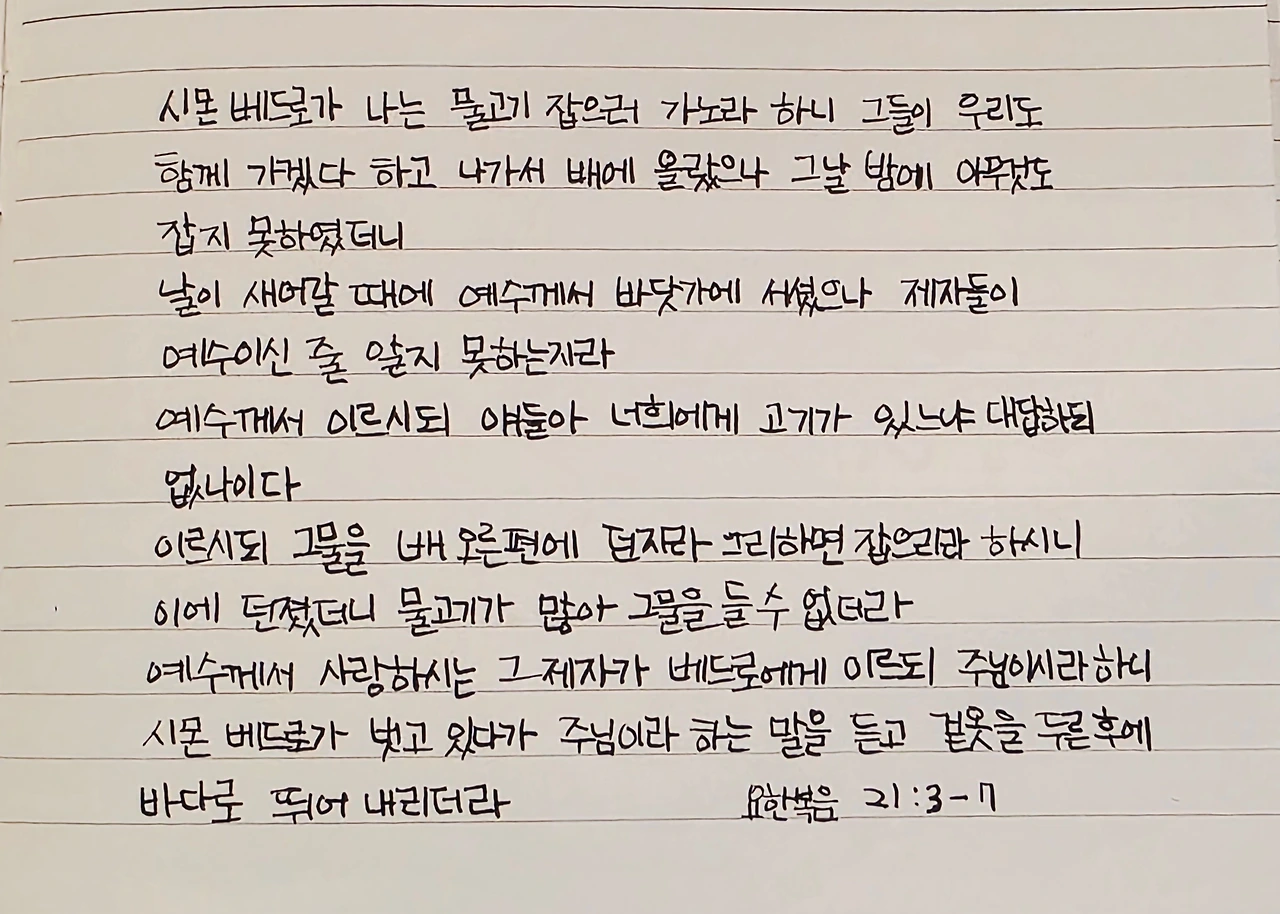 시몬 베드로가 나는 물고기 잡으러 가노라 하니 그들이 우리도
함께 가겠다 하고 나가서 배에 올랐으나 그날 밤에 아무것도
잡지 못하였더니
날이 새어갈 때에 예수께서 바닷가에 서셨으나 제자들이
예수이신 줄 알지 못하는지라
예수께서 이르시되 얘들아 너희에게 고기가 있느냐 대답하되
없나이다
이르시되 그물을 배 오른편에 던지라 그리하면 잡으리라 하시니
이에 던졌더니 물고기가 많아 그물을 들 수 없더라
예수께서 사랑하시는 그 제자가 베드로에게 이르되 주님이시라 하니
시몬 베드로가 벗고 있다가 주님이라 하는 말을 듣고 겉옷을 두른 후에
바다로 뛰어 내리더라
요한복음 21:3-7